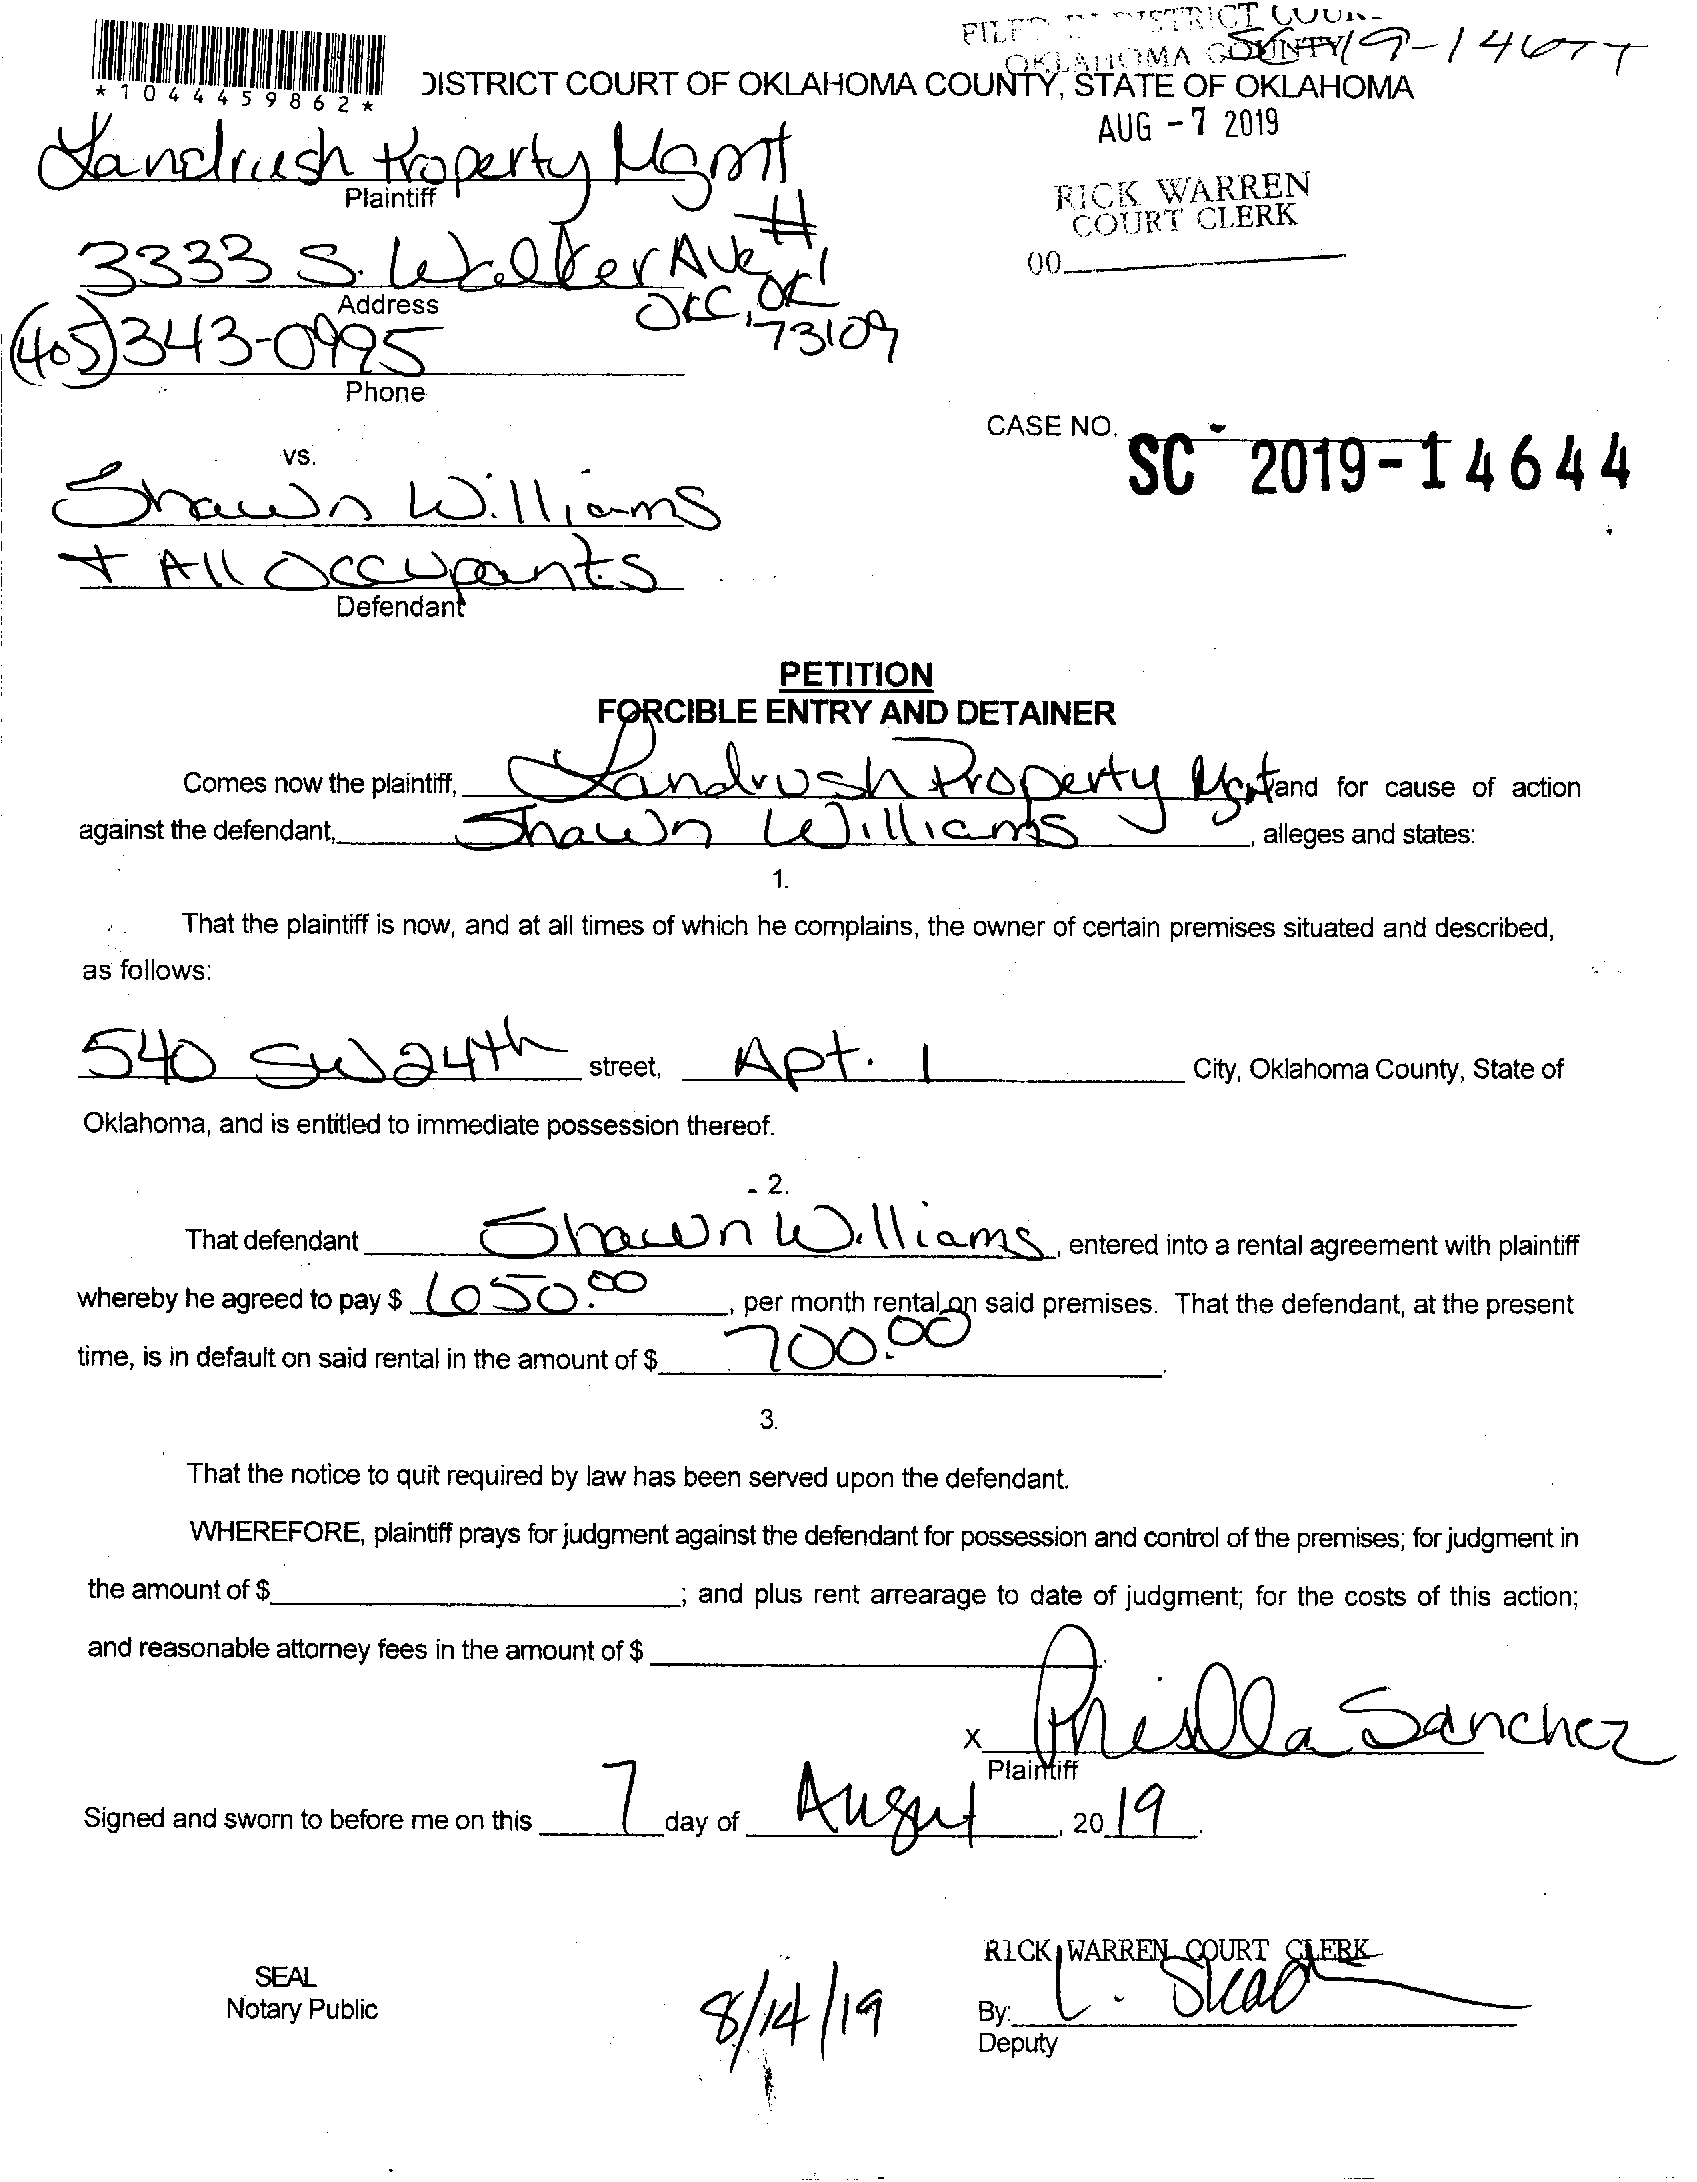 FILED IN DISTRICT COURT
OKLAHOMA COUNTY
*1044459862*
DISTRICT COURT OF OKLAHOMA COUNTY, STATE OF OKLAHOMA
AUG -7 2019
Landrush Property Mgmt
Plaintiff
RICK WARREN
COURT CLERK
3333 S. Walker Ave #1
Address
OKC, OK 73109
00
(405)343-0995
Phone
CASE NO. SC-2019-14644
vs.
Shawn Williams
+ All Occupants
Defendant
PETITION
FORCIBLE ENTRY AND DETAINER
Comes now the plaintiff, Landrush Property Mgmt and for cause of action
against the defendant, Shawn Williams, alleges and states:
1.
That the plaintiff is now, and at all times of which he complains, the owner of certain premises situated and described,
as follows:
540 SW 24th street, Apt. 1 City, Oklahoma County, State of
Oklahoma, and is entitled to immediate possession thereof.
2.
That defendant Shawn Williams, entered into a rental agreement with plaintiff
whereby he agreed to pay $ 650.00, per month rental on said premises. That the defendant, at the present
time, is in default on said rental in the amount of $ 700.00.
3.
That the notice to quit required by law has been served upon the defendant.
WHEREFORE, plaintiff prays for judgment against the defendant for possession and control of the premises; for judgment in
the amount of $; and plus rent arrearage to date of judgment; for the costs of this action;
and reasonable attorney fees in the amount of $
x Prisilla Sanchez
Plaintiff
Signed and sworn to before me on this 7 day of August, 2019.
RICK WARREN COURT CLERK
SEAL
Notary Public
8/14/19
By:
Deputy